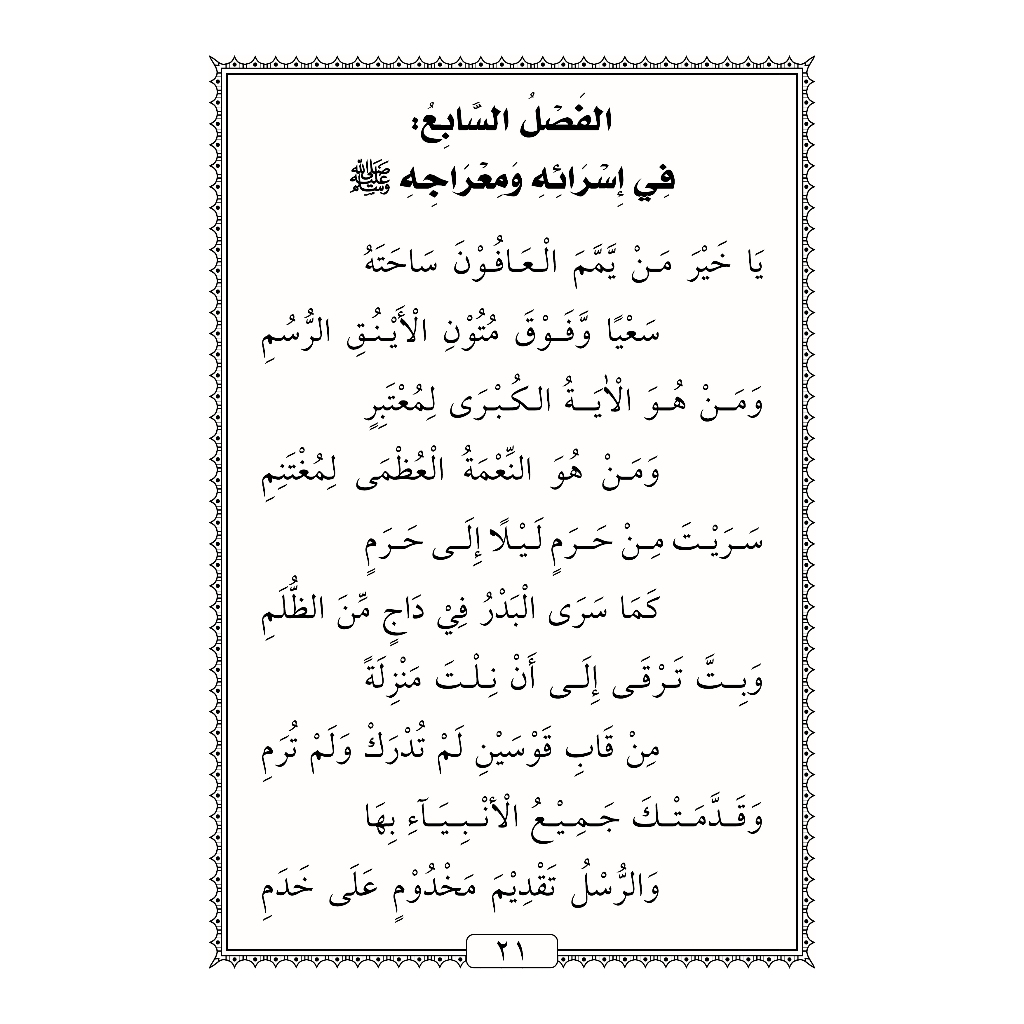 الفَصْلُ السَّابِعُ:
فِي إِسْرَائِهِ وَمِعْرَاجِهِ ﷺ
يَا خَيْرَ مَنْ يَّمَّمَ الْعَافُوْنَ سَاحَتَهُ
سَعْيًا وَّفَوْقَ مُتُوْنِ الْأَيْنُقِ الرُّسُمِ
وَمَنْ هُوَ الْاٰيَةُ الكُبْرَى لِمُعْتَبِرٍ
وَمَنْ هُوَ النِّعْمَةُ الْعُظْمَى لِمُغْتَنِمِ
سَرَيْتَ مِنْ حَرَمٍ لَيْلًا إِلَى حَرَمٍ
كَمَا سَرَى الْبَدْرُ فِيْ دَاجٍ مِّنَ الظُّلَمِ
وَبِتَّ تَرْقَى إِلَى أَنْ نِلْتَ مَنْزِلَةً
مِنْ قَابِ قَوْسَيْنِ لَمْ تُدْرَكْ وَلَمْ تُرَمِ
وَقَدَّمَتْكَ جَمِيْعُ الْأنْبِيَآءِ بِهَا
وَالرُّسْلُ تَقْدِيْمَ مَخْدُوْمٍ عَلَى خَدَمِ
٢١